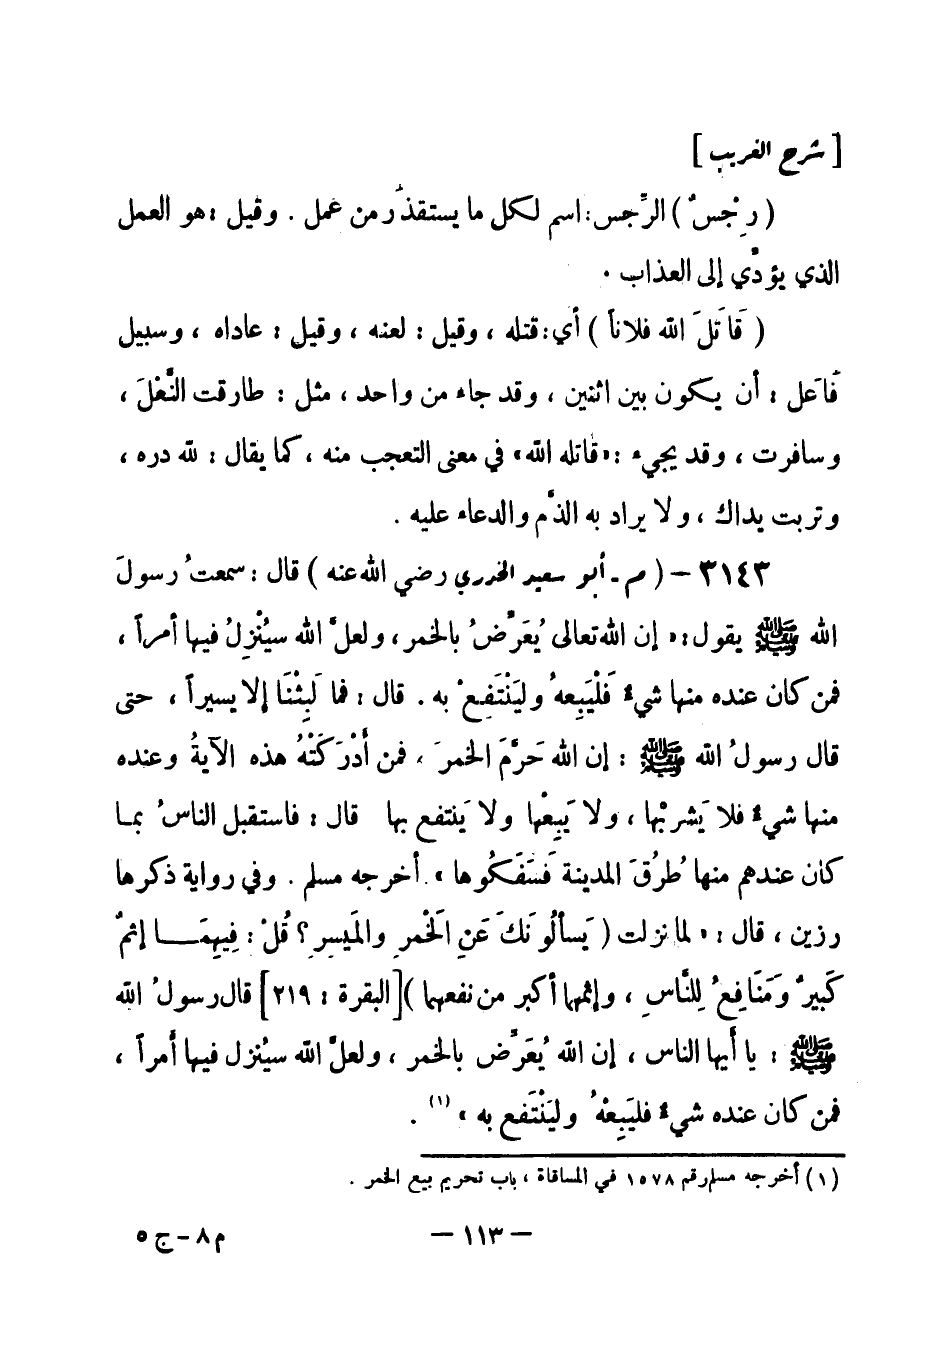 [ شرح الغريب ]
( رِجْسٌ ) الرِّجس : اسم لكل ما يستقذَر من عمل . وقيل : هو العمل
الذي يؤدّي إلى العذاب .
( قَاتَلَ الله فلاناً ) أي : قتله ، وقيل : لعنه ، وقيل : عاداه ، وسبيل
فَاعَل : أن يكون بين اثنين ، وقد جاء من واحد ، مثل : طارقت النَّعْلَ ،
وسافرت ، وقد يجيء : « قاتله الله » في معنى التعجب منه ، كما يقال : لله دره ،
وتربت يداك ، ولا يراد به الذَّم والدعاء عليه .
٣١٤٣ – ( م – أبو سعيد الخدري رضي الله عنه ) قال : سمعتُ رسولَ
الله ﷺ يقول : « إن الله تعالى يُعَرِّضُ بالخمر ، ولعلَّ الله سيُنْزِلُ فيها أمراً ،
فمن كان عنده منها شيءٌ فَلْيَبِعهُ وليَنْتَفِعْ به . قال : فما لَبِثْنَا إلا يسيراً ، حتى
قال رسولُ الله ﷺ : إن الله حَرَّمَ الخمرَ ، فمن أَدْرَكَتْهُ هذه الآيةُ وعنده
منها شيءٌ فلا يَشربْها ، ولا يَبِعْها ولا يَنتفع بها قال : فاستقبل الناسُ بما
كان عندهم منها طُرُقَ المدينة فَسَفَكُوها » . أخرجه مسلم . وفي رواية ذكرها
رزين ، قال : « لما نزلت ( يَسألُونَكَ عَنِ الخْمرِ والمَيسِرِ ؟ قُلْ : فِيهِمَا إثمٌ
كَبيرٌ وَمَنَافِعُ لِلنَّاسِ ، وإثمها أكبر من نفعهما ) [ البقرة : ٢١٩ ] قال رسولُ الله
ﷺ : يا أيها الناس ، إن الله يُعَرِّض بالخمر ، ولعلَّ الله سيُنزل فيها أمراً ،
فمن كان عنده شيءٌ فليَبِعْهُ وليَنْتَفع به » (١) .
(١) أخرجه مسلم رقم ١٥٧٨ في المساقاة ، باب تحريم بيع الخمر .
– ١١٣ –
م ٨ – ج ٥